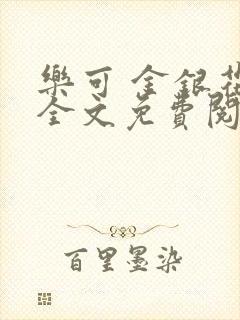 樂可 金銀花
全文免費閱
百里墨染